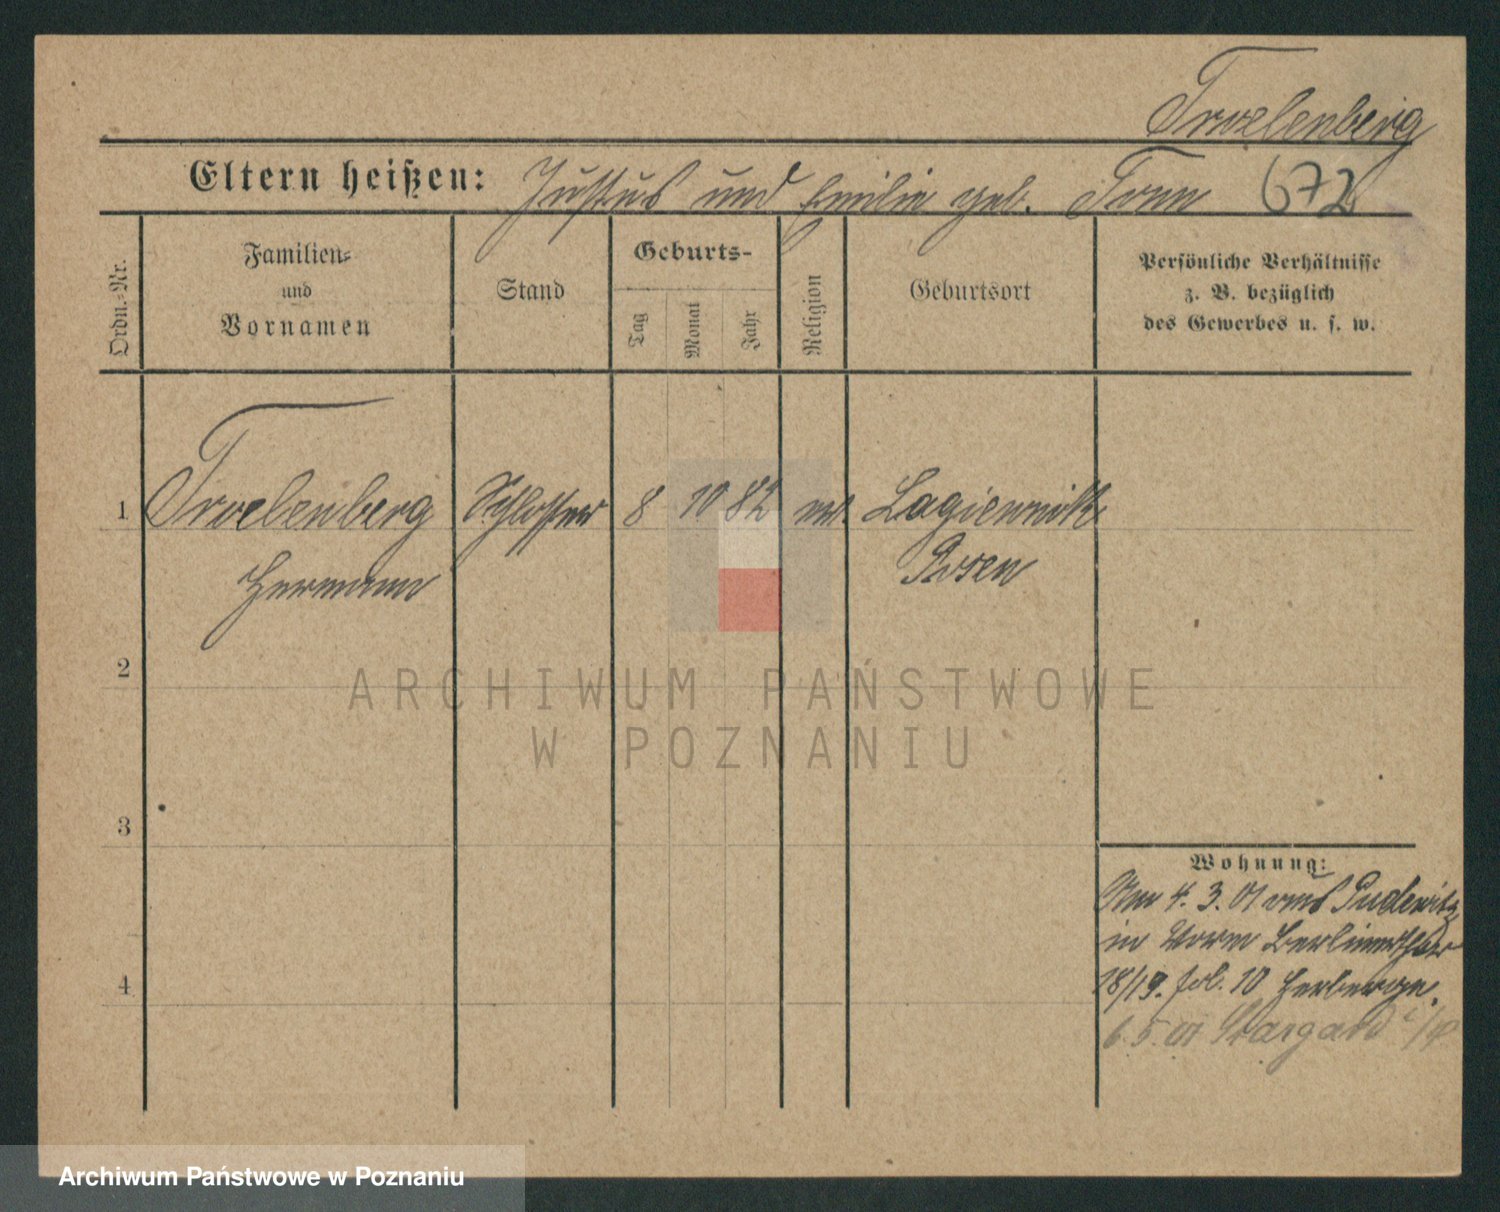 Troelenberg
Eltern heißen: Justus und Emilie geb. Tonn 672
Ordn.-Nr.
Familien-
und
Vornamen
Stand
Geburts-
Tag
Monat
Jahr
Religion
Geburtsort
Persönliche Verhältnisse
z. B. bezüglich
des Gewerbes u. s. w.
1 Troelenberg Schlosser 8 10 82 ev. Lagiewnik
Hermann Posen
2
ARCHIWUM PAŃSTWOWE
W POZNANIU
3
Wohnung:
Am 4. 3. 01 aus Pudewitz
in Vorm Berlinerthor
4
18/19. fol. 10 Herberge.
6. 5. 01 Stargard i/P
Archiwum Państwowe w Poznaniu